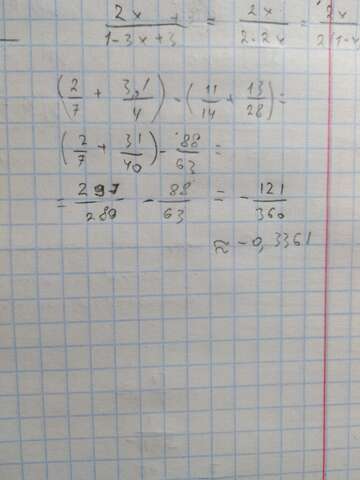 2x / 1-3x+3 = 2x / 2-2x = 2x / 2(1-x
(2/7 + 3,1/4) - (11/14 + 13/28) =
(2/7 + 31/40) - 88/63 =
= 297/280 - 88/63 = - 121/360
≈ -0,3361